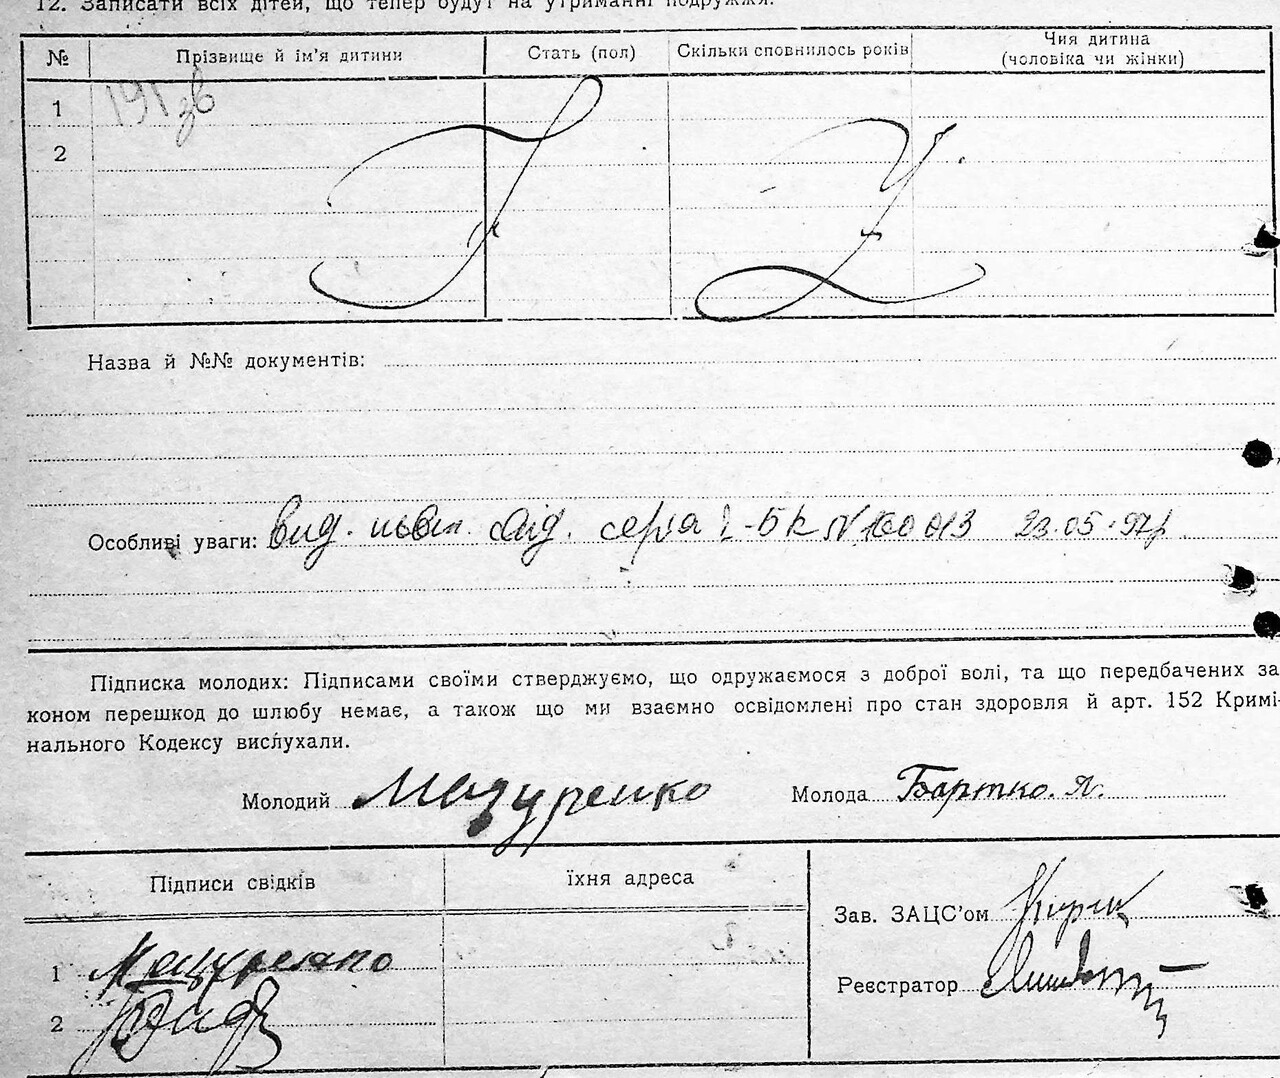 12. Записати всіх дітей, що тепер будуть на утриманні подружжя.
№ Прізвище й ім'я дитини Стать (пол) Скільки сповнилось років Чия дитина (чоловіка чи жінки)
1
2
Назва й №№ документів:
Особливі уваги: вид. повт. свід. серія I-БК № 160013 23.05.97р.
Підписка молодих: Підписами своїми стверджуємо, що одружаємося з доброї волі, та що передбачених за
коном перешкод до шлюбу немає, а також що ми взаємно освідомлені про стан здоровля й арт. 152 Кримі-
нального Кодексу вислухали.
Молодий Мазуренко Молода Бартко. Л.
Підписи свідків їхня адреса
Зав. ЗАЦС'ом
1 Мазуренко
Реєстратор
2